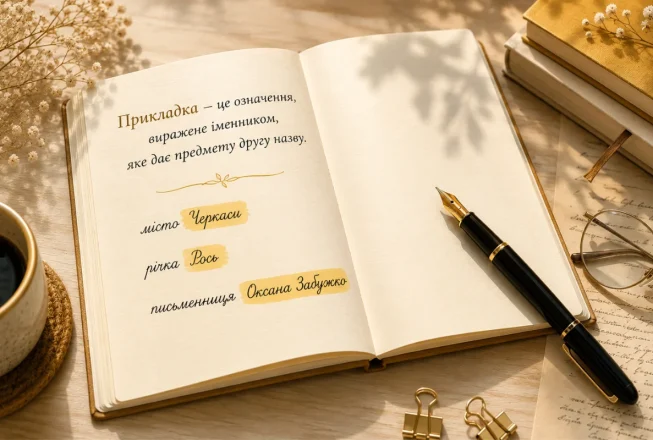 Прикладка – це означення,
виражене іменником,
яке дає предмету другу назву.
місто Черкаси
річка Рось
письменниця Оксана Забужко